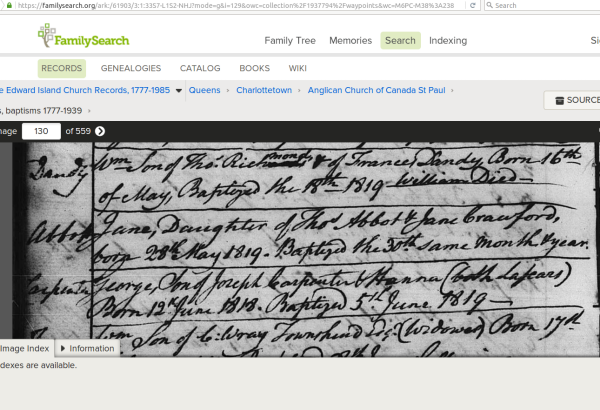 https://familysearch.org/ark:/61903/3:1:33S7-L1S2-NHJ?mode=g&i=129&owc=collection%2F1937794%2Fwaypoints&wc=M6PC-M38%3A238
Search
FamilySearch
Family Tree Memories Search Indexing
RECORDS GENEALOGIES CATALOG BOOKS WIKI
e Edward Island Church Records, 1777-1985 Queens › Charlottetown › Anglican Church of Canada St Paul ›
SOURCE
s, baptisms 1777-1939 ›
mage 130 of 559
Dandy
Wm Son of Thos & of Frances Dandy Born 16th
of May, Baptized the 18th 1819 William Died
Abbot
Jane, Daughter of Thos Abbot & Jane Crawford,
born 28th May 1819. Baptized the 30th same Month & year.
George, Son of Joseph Carpenter & Hanna (both
Born 12th June 1818. Baptized 5th June 1819
Wm Son of C: Wray Townshend Esq: (Widowed) Born 17th
Image Index Information
dexes are available.